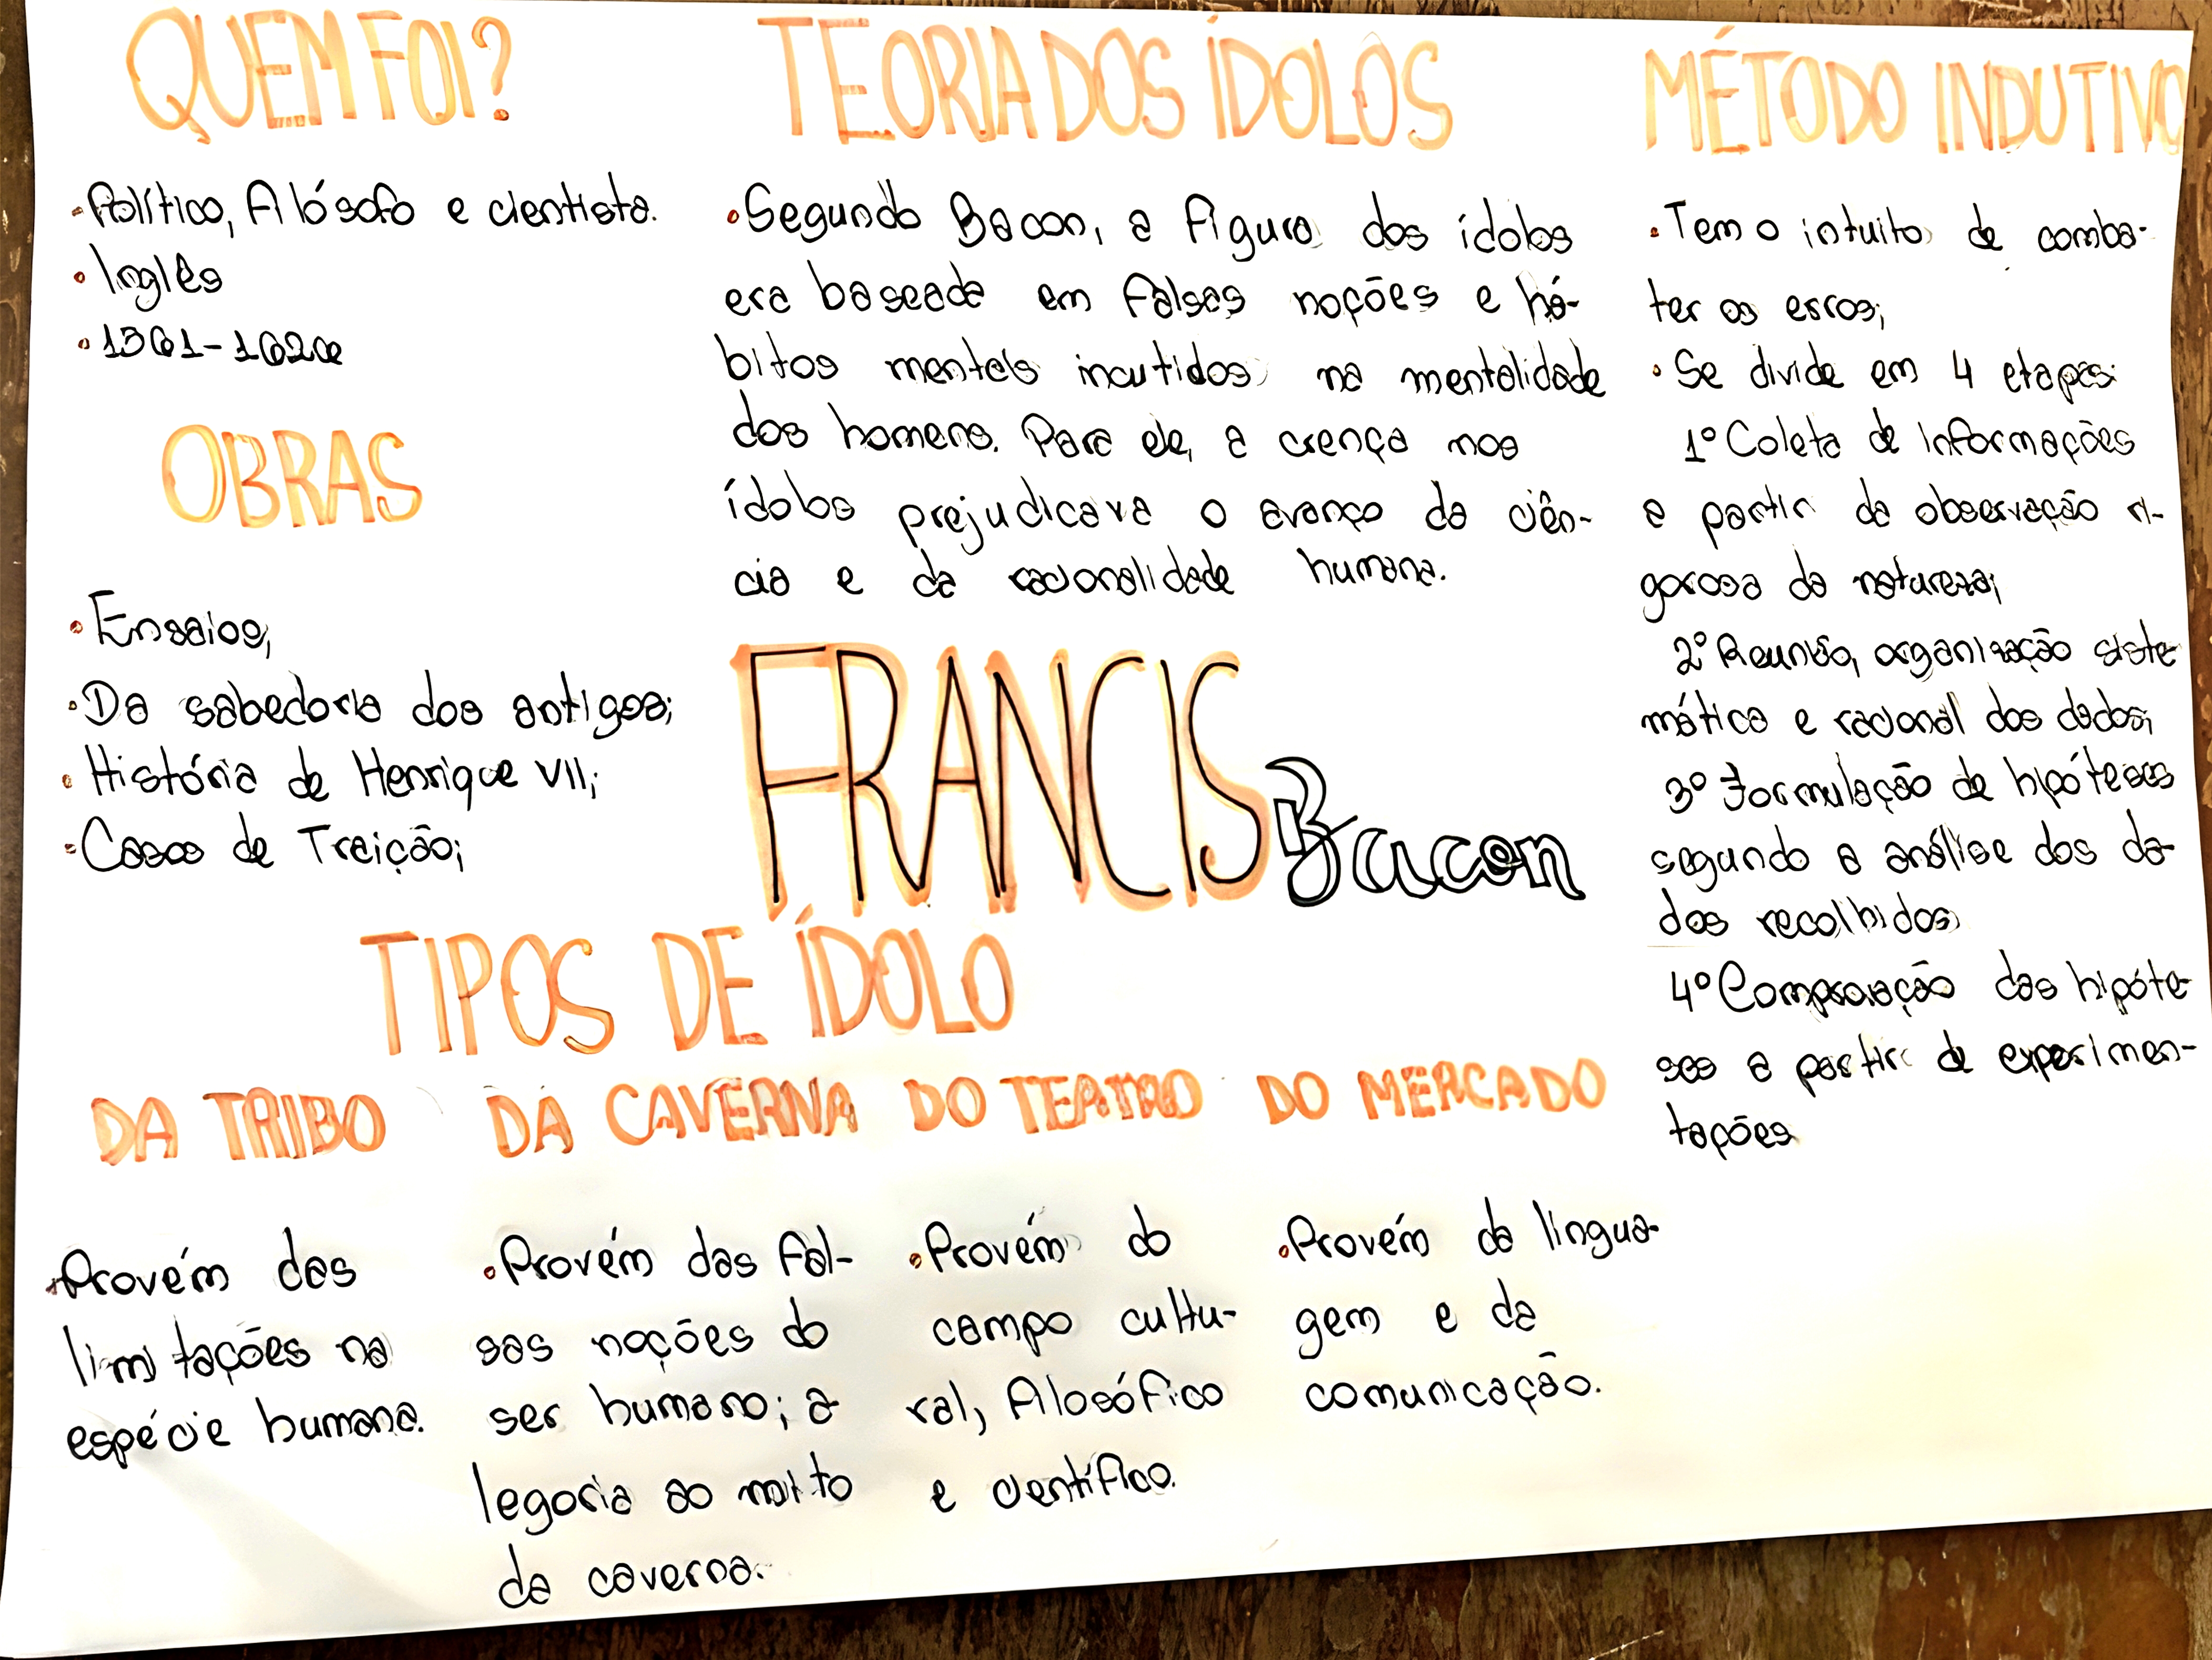 QUEM FOI?
• Político, filósofo e cientista.
• Inglês
• 1561-1626
OBRAS
• Ensaios;
• Da sabedoria dos antigos;
• História de Henrique VII;
• Casos de Traição;
TEORIA DOS ÍDOLOS
• Segundo Bacon, a figura dos ídolos
era baseada em falsas noções e há-
bitos mentais incutidos na mentalidade
dos homens. Para ele, a crença nos
ídolos prejudicava o avanço da ciên-
cia e da racionalidade humana.
FRANCIS Bacon
MÉTODO INDUTIVO
• Tem o intuito de comba-
ter os erros;
• Se divide em 4 etapas:
1º Coleta de informações
a partir da observação ri-
gorosa da natureza;
2º Reunião, organização siste
mática e racional dos dados;
3º Formulação de hipóteses
segundo a análise dos da-
dos recolhidos;
4º Comprovação das hipóte
ses a partir de experimen-
tações
TIPOS DE ÍDOLO
DA TRIBO
• Provém das
limitações na
espécie humana.
DA CAVERNA
• Provém das fal-
sas noções do
ser humano; a
legoria ao mito
da caverna.
DO TEATRO
• Provém do
campo cultu-
ral, filosófico
e científico.
DO MERCADO
• Provém da lingua-
gem e da
comunicação.